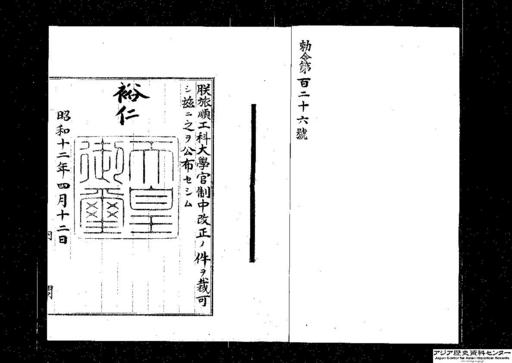 勅令第百二十六號
朕旅順工科大學官制中改正ノ件ヲ裁可
シ茲ニ之ヲ公布セシム
裕仁
天皇御璽
昭和十二年四月十二日
アジア歴史資料センター
Japan Center for Asian Historical Records